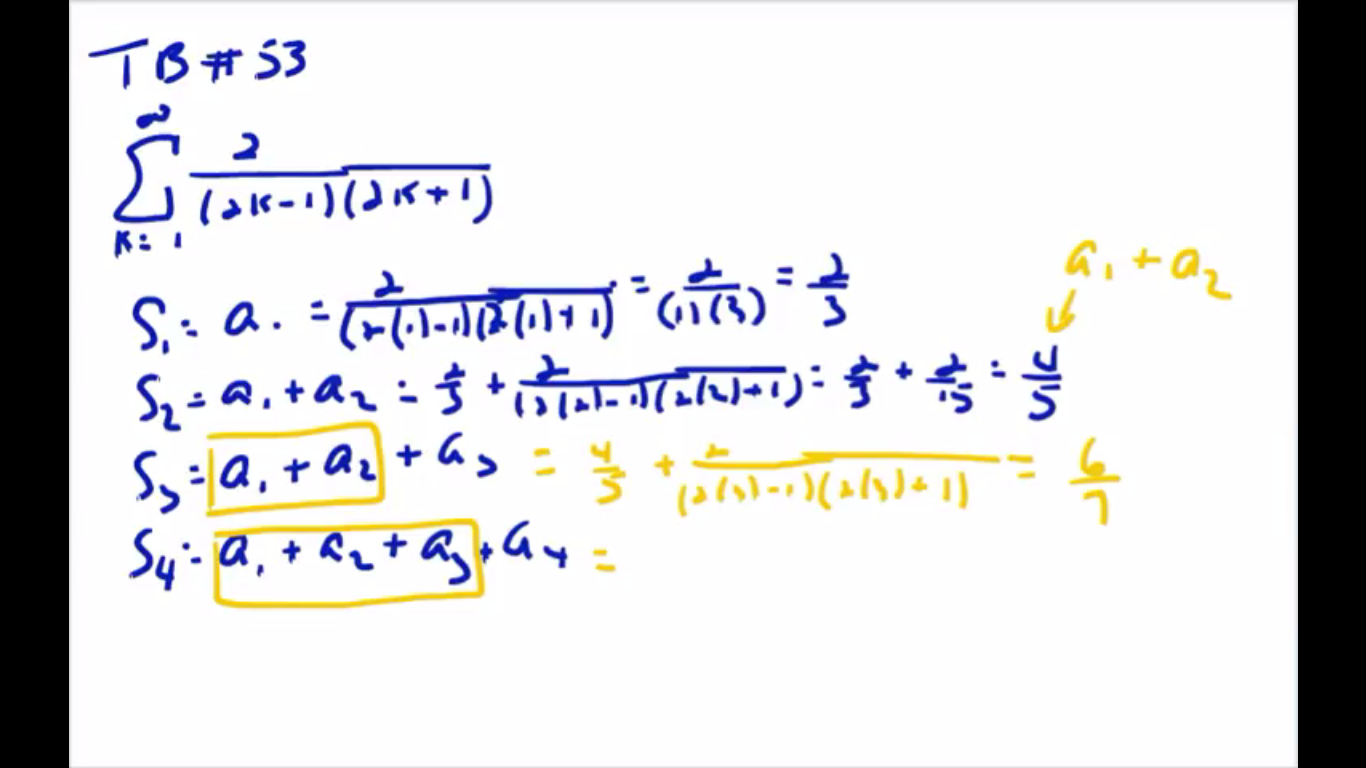 TB # 53
∞
∑ 2/((2k-1)(2k+1))
k=1
a₁ + a₂
S₁ = a₁ = 2/((2(1)-1)(2(1)+1)) = 2/((1)(3)) = 2/3
S₂ = a₁ + a₂ = 2/3 + 2/((2(2)-1)(2(2)+1)) = 2/3 + 2/15 = 4/5
S₃ = a₁ + a₂ + a₃ = 4/5 + 2/((2(3)-1)(2(3)+1)) = 6/7
S₄ = a₁ + a₂ + a₃ + a₄ =